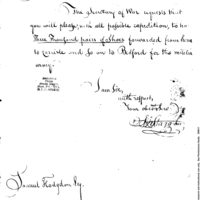 The Secretary of War requests that
you will please, with all possible expedition, to be
Three Thousand pairs of Shoes forwarded from here
to Carlisle and so on to Bedford for the militia
army.
I am Sir,
with respect,
Your obedient
Samuel Hodgdon Esq.